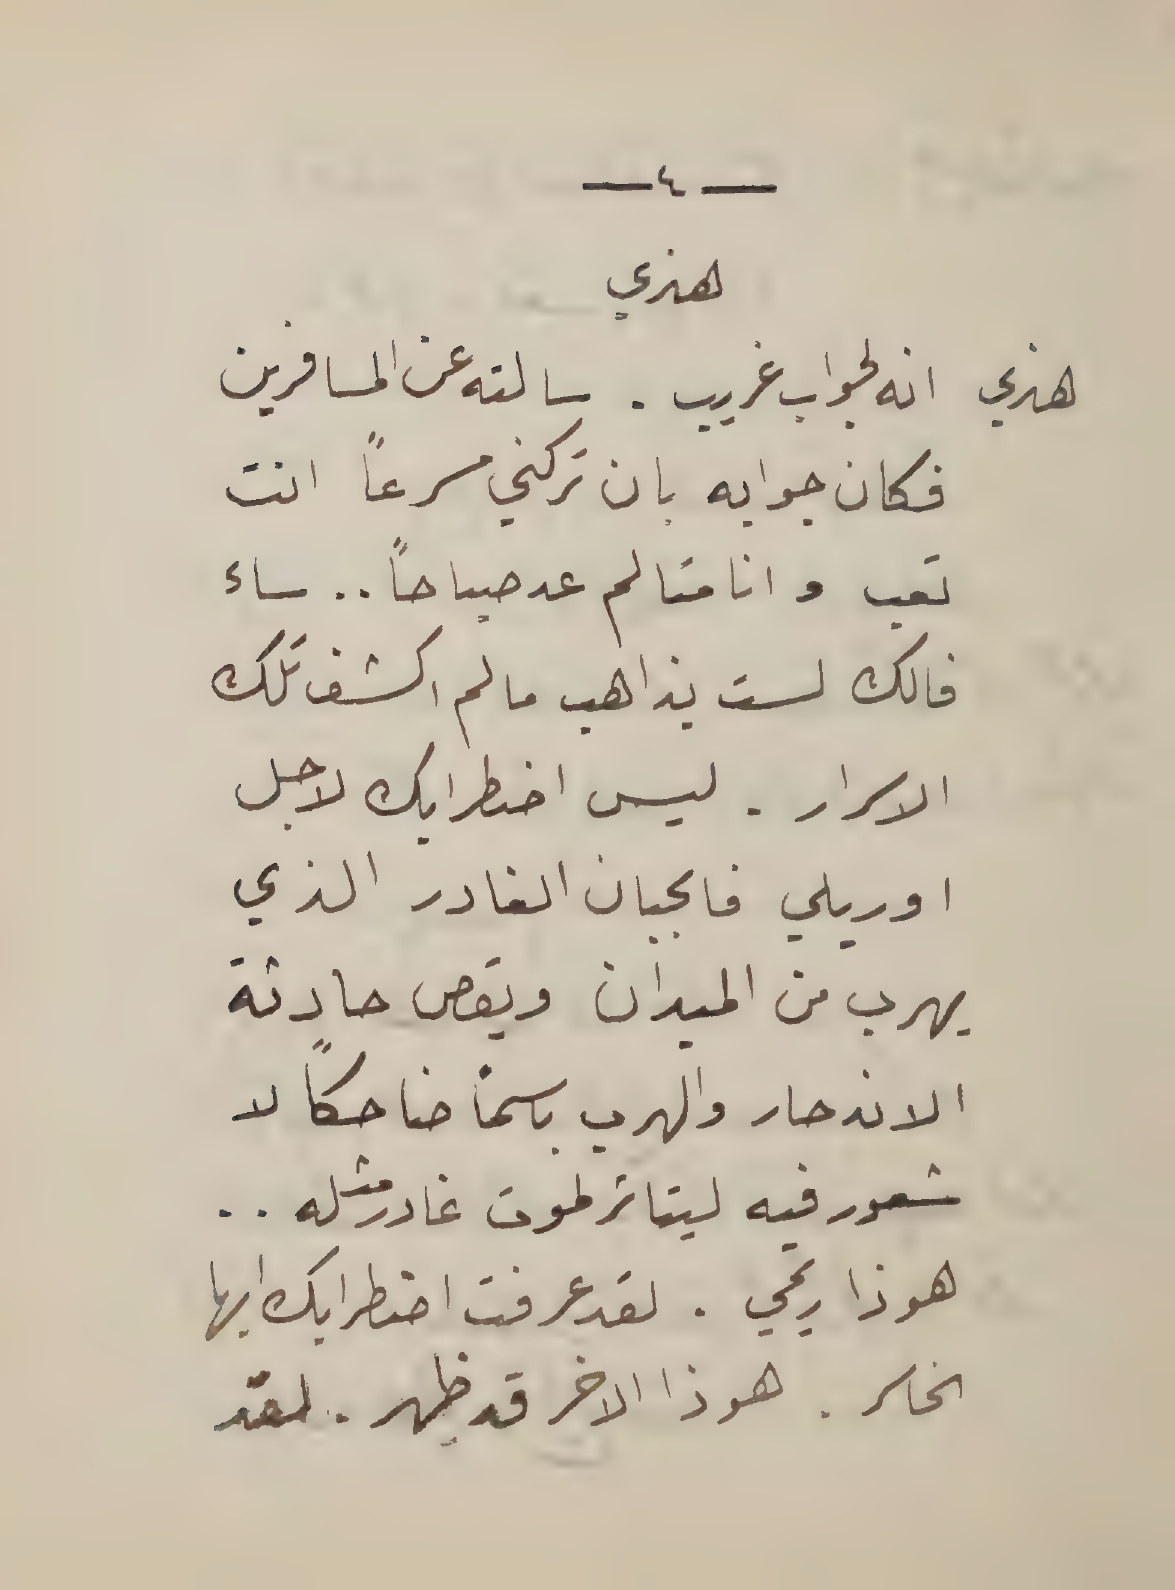 — ٤ —
هنري
هنري انه لجواب غريب . سالته عن المسافرين
فكان جوابه بان تركني مسرعاً انت
تعب و انا متالم عد صباحاً .. ساء
فالك لست بذاهب مالم اكشف تلك
الاسرار . ليس اضطرابك لاجل
اوريلي فالجبان الغادر الذي
يهرب من الميدان ويقص حادثة
الاندحار والهرب باسماً ضاحكاً لا
شعور فيه ليتاثر لموت غادر مثله ..
هوذا يحي . لقد عرفت اضطرابك ايها
الخاسر . هوذا الاخر قد ظهر . لقد